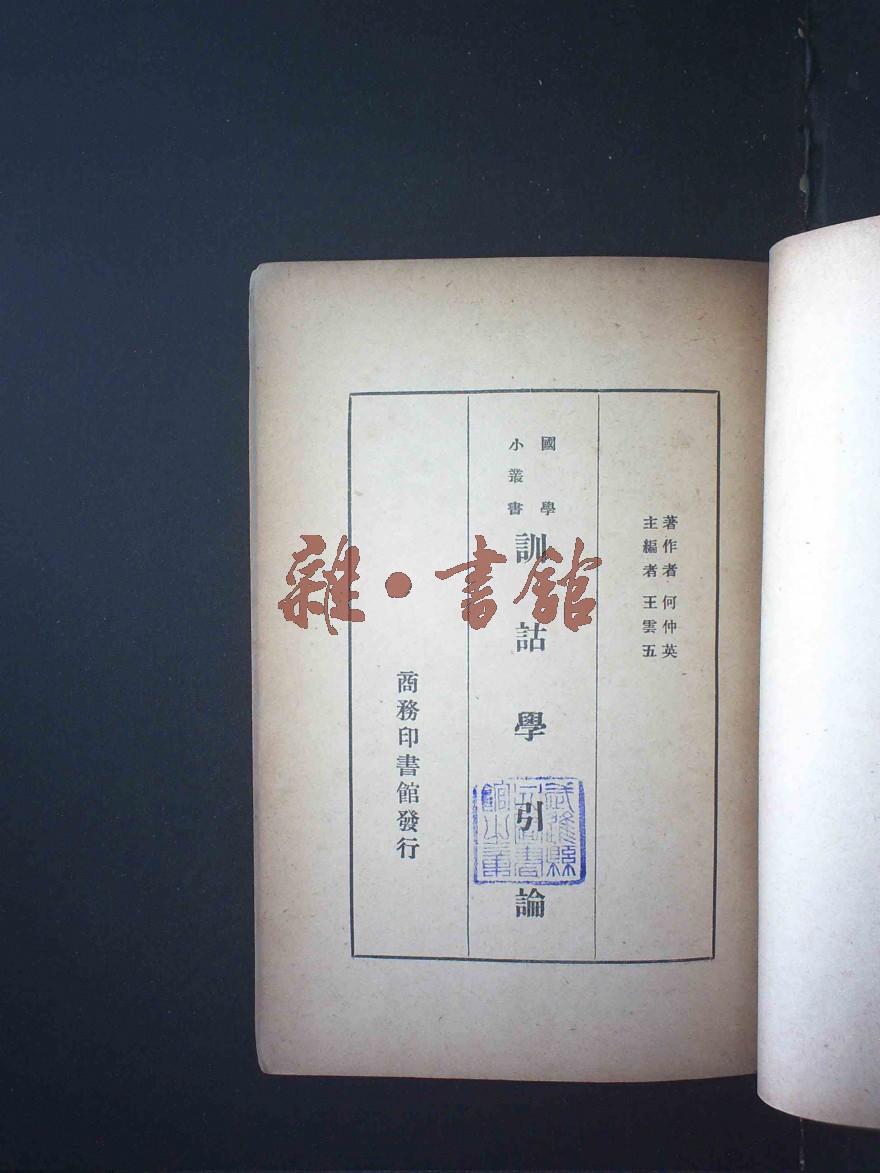 著作者 何仲英
主編者 王雲五
國學
小叢書
訓詁學引論
商務印書館發行
雜·書館
武進縣